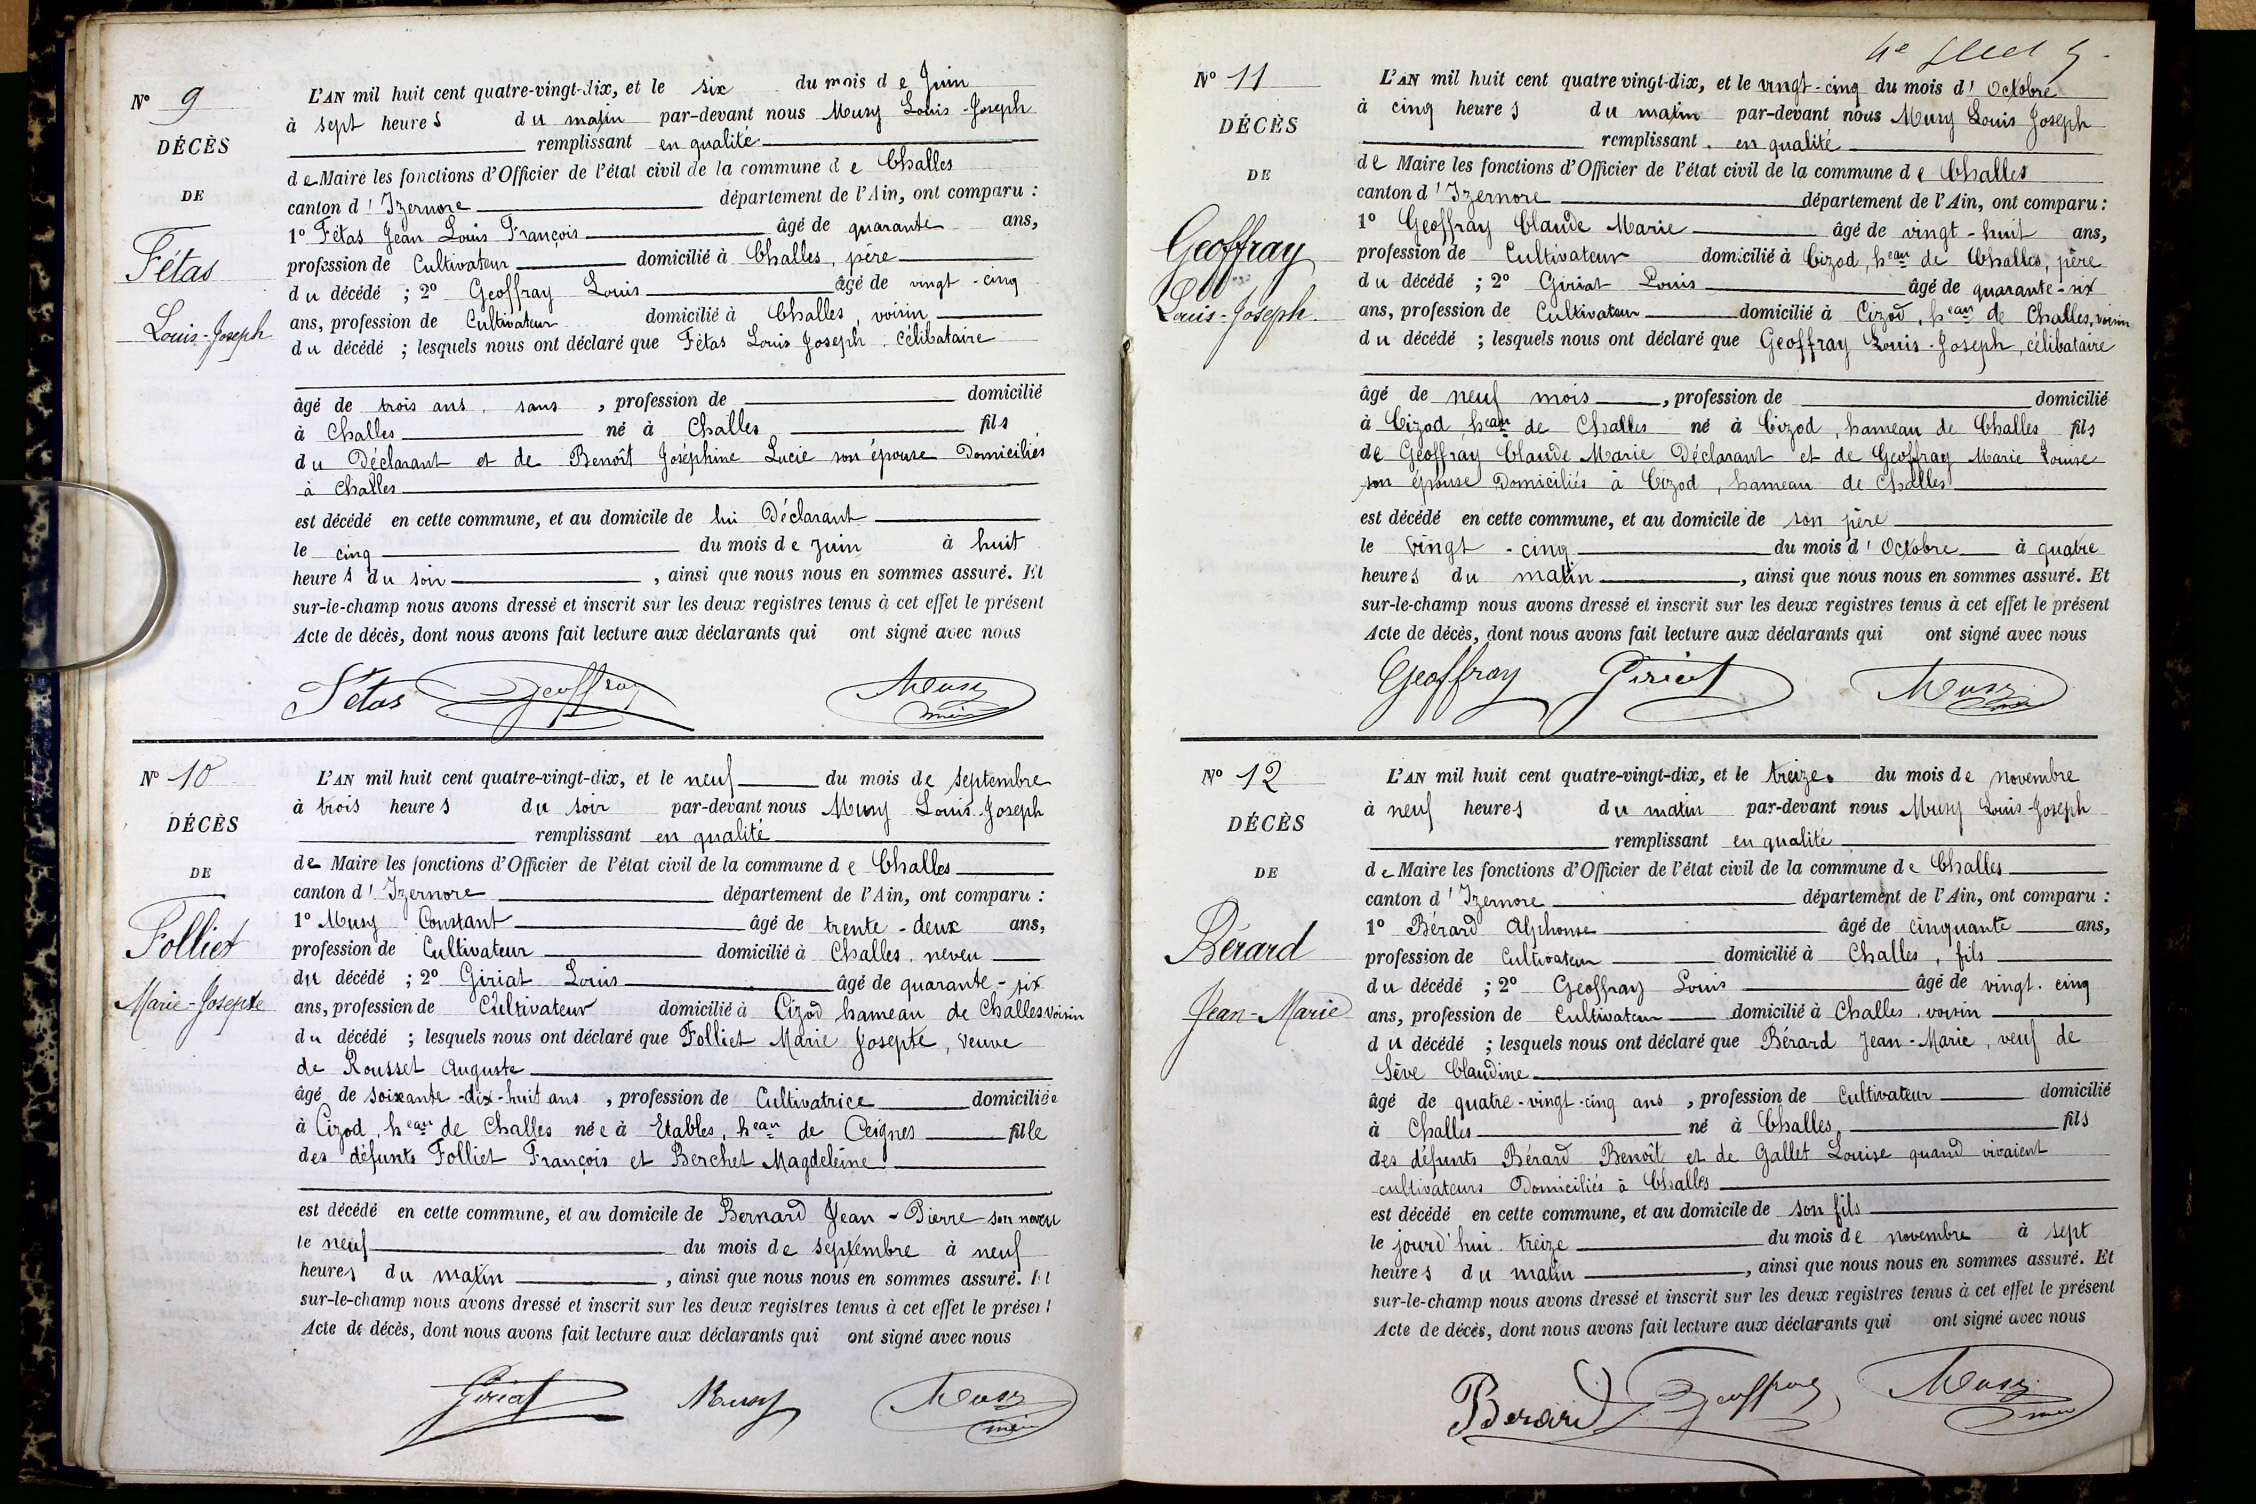 N° 9
DÉCÈS
DE
Fétas
Louis-Joseph
L'AN mil huit cent quatre-vingt-dix, et le six du mois de Juin
à sept heures du matin par-devant nous Musy Louis-Joseph
remplissant en qualité
de Maire les fonctions d'Officier de l'état civil de la commune de Challes
canton d'Izernore département de l'Ain, ont comparu :
1° Fétas Jean Louis François âgé de quarante ans,
profession de Cultivateur domicilié à Challes, père
du décédé ; 2° Geoffray Louis âgé de vingt-cinq
ans, profession de Cultivateur domicilié à Challes, voisin
du décédé ; lesquels nous ont déclaré que Fétas Louis Joseph, célibataire
âgé de trois ans, sans , profession de domicilié
à Challes né à Challes fils
du Déclarant et de Benoît Joséphine Lucie son épouse Domiciliés
à Challes
est décédé en cette commune, et au domicile de lui Déclarant
le cinq du mois de Juin à huit
heures du soir , ainsi que nous nous en sommes assuré. Et
sur-le-champ nous avons dressé et inscrit sur les deux registres tenus à cet effet le présent
Acte de décès, dont nous avons fait lecture aux déclarants qui ont signé avec nous
Fétas Geoffray Musy
maire
N° 10
DÉCÈS
DE
Folliet
Marie-Josepte
L'AN mil huit cent quatre-vingt-dix, et le neuf du mois de septembre
à trois heures du soir par-devant nous Musy Louis-Joseph
remplissant en qualité
de Maire les fonctions d'Officier de l'état civil de la commune de Challes
canton d'Izernore département de l'Ain, ont comparu :
1° Musy Constant âgé de trente-deux ans,
profession de Cultivateur domicilié à Challes, neveu
du décédé ; 2° Giriat Louis âgé de quarante-six
ans, profession de Cultivateur domicilié à Cizod hameau de Challes voisin
du décédé ; lesquels nous ont déclaré que Folliet Marie Josepte, veuve
de Rousset Auguste
âgé de soixante-dix-huit ans , profession de Cultivatrice domiciliée
à Cizod, heau de Challes née à Etables, heau de Ceignes fille
des défunts Folliet François et Berchet Magdeleine
est décédé en cette commune, et au domicile de Bernard Jean-Pierre son neveu
le neuf du mois de septembre à neuf
heures du matin , ainsi que nous nous en sommes assuré. Et
sur-le-champ nous avons dressé et inscrit sur les deux registres tenus à cet effet le présent
Acte de décès, dont nous avons fait lecture aux déclarants qui ont signé avec nous
Giriat Musy Musy
maire
N° 11
DÉCÈS
DE
Geoffray
Louis-Joseph
L'AN mil huit cent quatre vingt-dix, et le vingt-cinq du mois d'Octobre
à cinq heures du matin par-devant nous Musy Louis Joseph
remplissant en qualité
de Maire les fonctions d'Officier de l'état civil de la commune de Challes
canton d'Izernore département de l'Ain, ont comparu :
1° Geoffray Claude Marie âgé de vingt-huit ans,
profession de Cultivateur domicilié à Cizod, heau de Challes, père
du décédé ; 2° Giriat Louis âgé de quarante-six
ans, profession de Cultivateur domicilié à Cizod, heau de Challes, voisin
du décédé ; lesquels nous ont déclaré que Geoffray Louis-Joseph, célibataire
âgé de neuf mois , profession de domicilié
à Cizod, heau de Challes né à Cizod, hameau de Challes fils
de Geoffray Claude Marie Déclarant et de Geoffray Marie Louise
son épouse Domiciliés à Cizod, hameau de Challes
est décédé en cette commune, et au domicile de son père
le vingt-cinq du mois d'Octobre à quatre
heures du matin , ainsi que nous nous en sommes assuré. Et
sur-le-champ nous avons dressé et inscrit sur les deux registres tenus à cet effet le présent
Acte de décès, dont nous avons fait lecture aux déclarants qui ont signé avec nous
Geoffray Giriat Musy
maire
N° 12
DÉCÈS
DE
Bérard
Jean-Marie
L'AN mil huit cent quatre-vingt-dix, et le treize du mois de novembre
à neuf heures du matin par-devant nous Musy Louis-Joseph
remplissant en qualité
de Maire les fonctions d'Officier de l'état civil de la commune de Challes
canton d'Izernore département de l'Ain, ont comparu :
1° Bérard Alphonse âgé de cinquante ans,
profession de Cultivateur domicilié à Challes, fils
du décédé ; 2° Geoffray Louis âgé de vingt-cinq
ans, profession de Cultivateur domicilié à Challes, voisin
du décédé ; lesquels nous ont déclaré que Bérard Jean-Marie, veuf de
Sève Claudine
âgé de quatre-vingt-cinq ans , profession de Cultivateur domicilié
à Challes né à Challes fils
des défunts Bérard Benoît et de Gallet Louise quand vivaient
cultivateurs Domiciliés à Challes
est décédé en cette commune, et au domicile de son fils
le jourd'hui treize du mois de novembre à sept
heures du matin , ainsi que nous nous en sommes assuré. Et
sur-le-champ nous avons dressé et inscrit sur les deux registres tenus à cet effet le présent
Acte de décès, dont nous avons fait lecture aux déclarants qui ont signé avec nous
Berard Geoffray Musy
maire